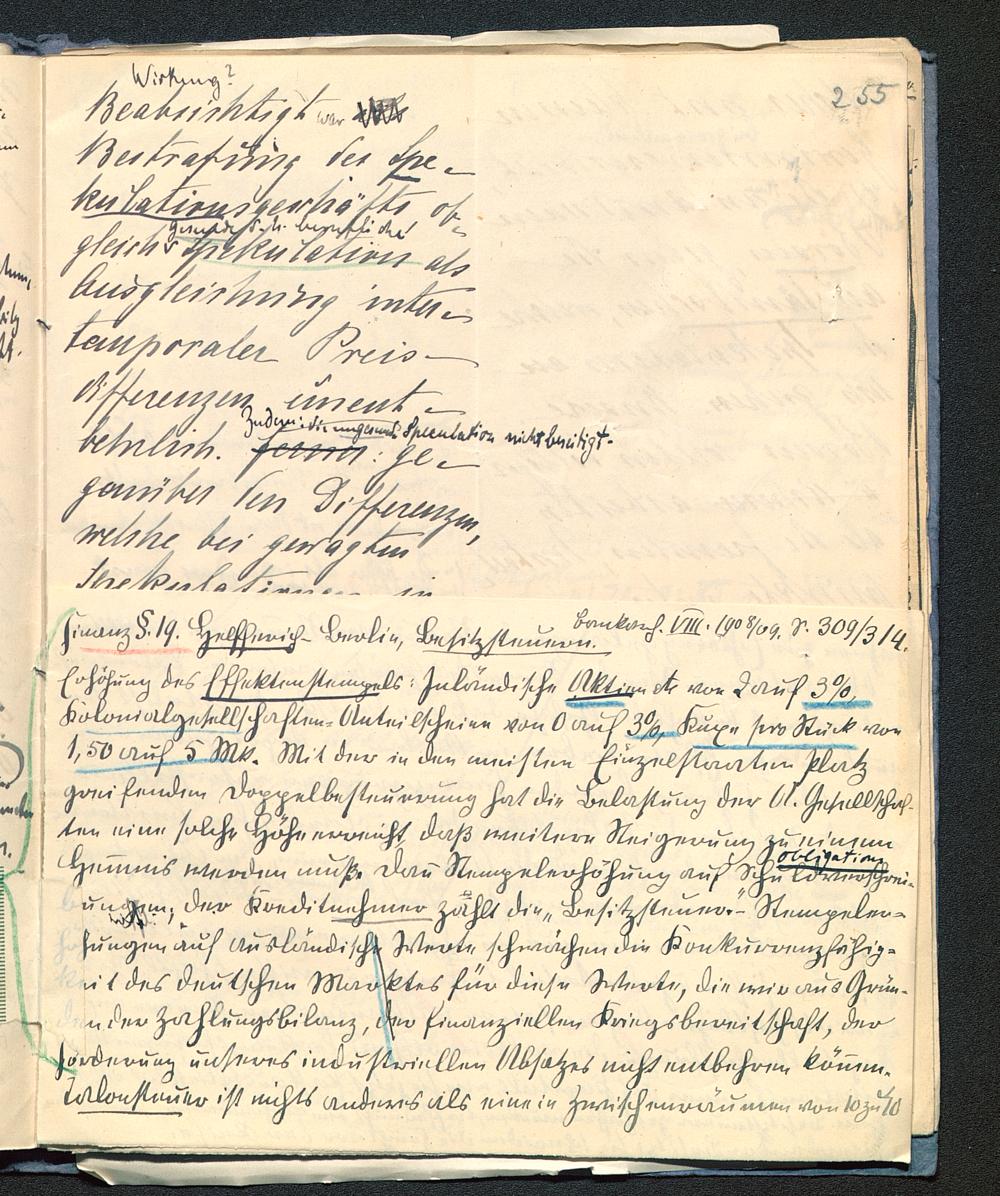 255
Wirkung?
Beabsichtigt war
Bestrafung des Spe-
kulationsgeschäfts ob-
gerade d. h. berufliche
gleich Spekulation als
Ausgleichung inter-
temporaler Preis-
differenzen unent-
Zudem: die ungesunde Speculation nicht beseitigt.
behrlich. ferner: ge-
genüber den Differenzen,
welche bei gewagten
Spekulationen in
Finanz §. 19. Helfferich-Berlin, Besitzsteuern. Bankarch. VIII. 1908/09. S. 309/314.
Erhöhung des Effektenstempels: Inländische Aktien etc von 2 auf 3%,
Kolonialgesellschaften-Anteilscheine von 0 auf 3%, Kuxe pro Stück von
1,50 auf 5 Mk. Mit der in den meisten Einzelstaaten Platz
greifenden Doppelbesteuerung hat die Belastung der A. Gesellschaf-
ten eine solche Höhe erreicht, daß weitere Steigerung zu einem
Hemmnis werden muß. Den Stempelerhöhung auf Schuldverschrei-
obligation
bungen, der Kreditnehmer zählt die „Besitzsteuer"- Stempeler-
hungen auf ausländische Werte schwächen die Konkurrenzfähig-
keit des deutschen Marktes für diese Werte, die wir aus Grün-
den der Zahlungsbilanz, der finanziellen Kriegsbereitschaft, der
Förderung unseres industriellen Absatzes nicht entbehren können.
Talonsteuer ist nichts anderes als eine in Zwischenräumen von 10 zu 10